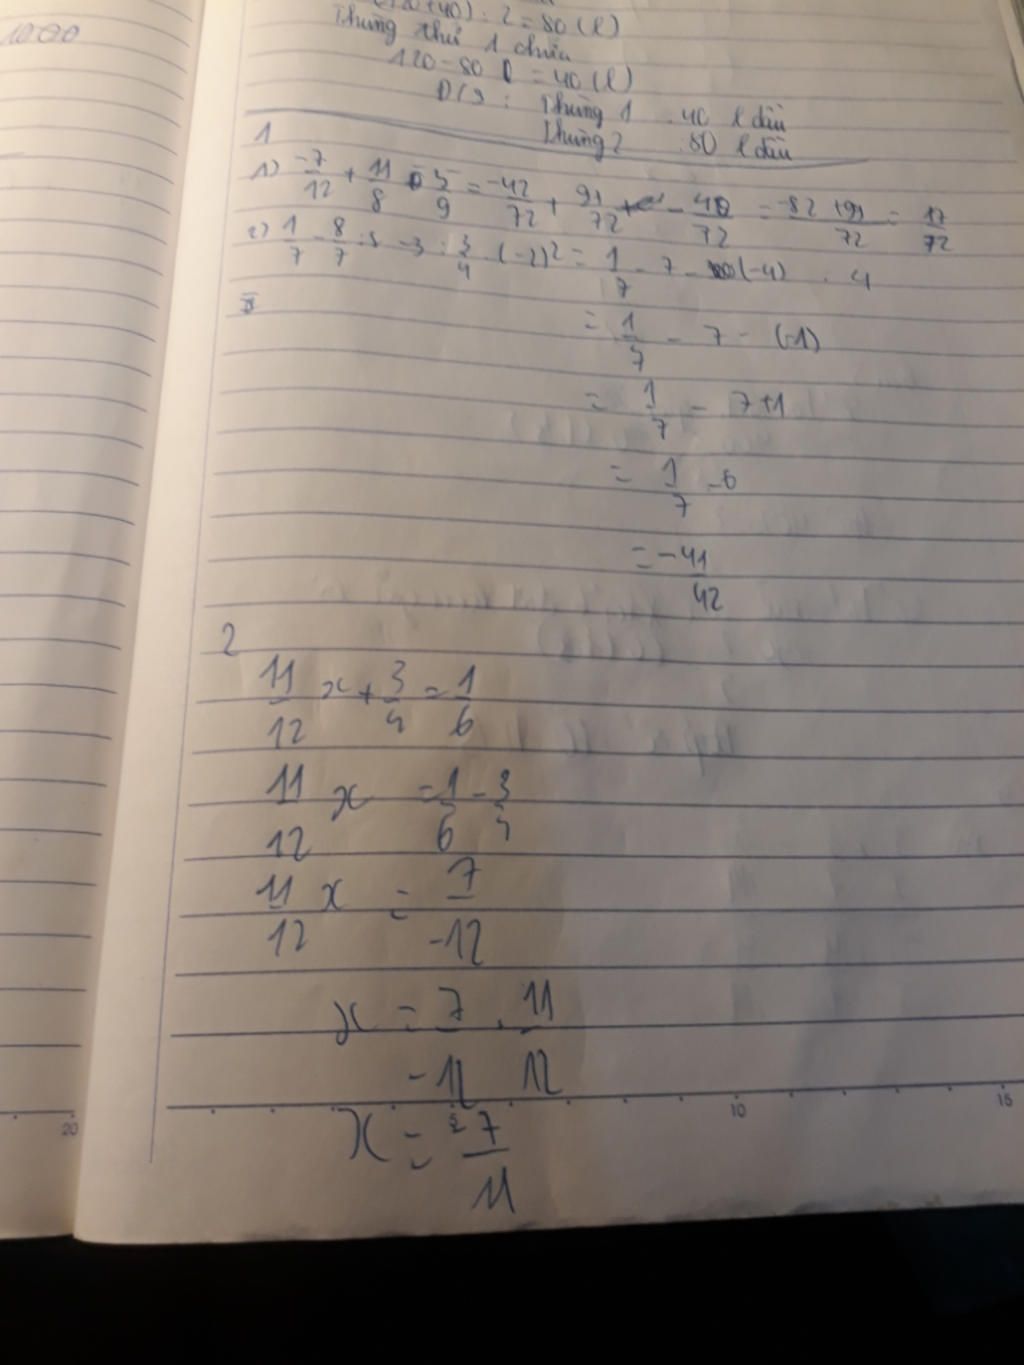 1000
(120+40) : 2 = 80 (l)
Thùng thứ 1 chứa
120 - 80 = 40 (l)
Đ/s : Thùng 1 40 l dầu
Thùng 2 : 80 l dầu
1
1) -7/12 + 11/8 - 5/9 = -42/72 + 99/72 - 40/72 = -82+99/72 = 17/72
2) 1/7 - 8/7 : 8 - 3 : 3/4 . (-2)² = 1/7 - 7 - (-4) . 4
= 1/7 - 7 - (-1)
= 1/7 - 7+1
= 1/7 - 6
= -41/42
2
11/12 x + 3/4 = 1/6
11/12 x = 1/6 - 3/4
11/12 x = 7/-12
x = 7/-12 . 11/12
x = -7/11
5 10 15
20